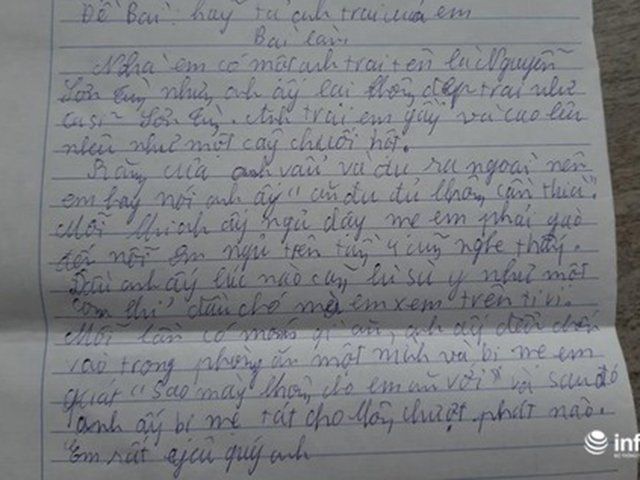 Đề Bài: hãy tả anh trai của em
Bài làm
Nhà em có một anh trai tên là Nguyễn
Sơn Tùng nhưng anh ấy lại không đẹp trai như
ca sĩ Sơn Tùng. Anh trai em gầy và cao lêu
nêu như một cây chuối hột.
Răng của anh vẩu và đu ra ngoài nên
em hay nói anh ấy "ăn đu đủ không cần thìa".
Mỗi khi anh ấy ngủ dậy mẹ em phải gào
đến nỗi em ngủ trên tầng 4 cũng nghe thấy.
Đầu anh ấy lúc nào cũng bù sù y như một
con thú đầu chó mà em xem trên ti vi.
Mỗi lần có món gì ăn, anh ấy đều
vào trong phòng ăn một mình và bị mẹ em
quát "Sao mày không cho em ăn với" và sau đó
anh ấy bị mẹ tát cho không chượt phát nào.
Em rất quý anh
inf